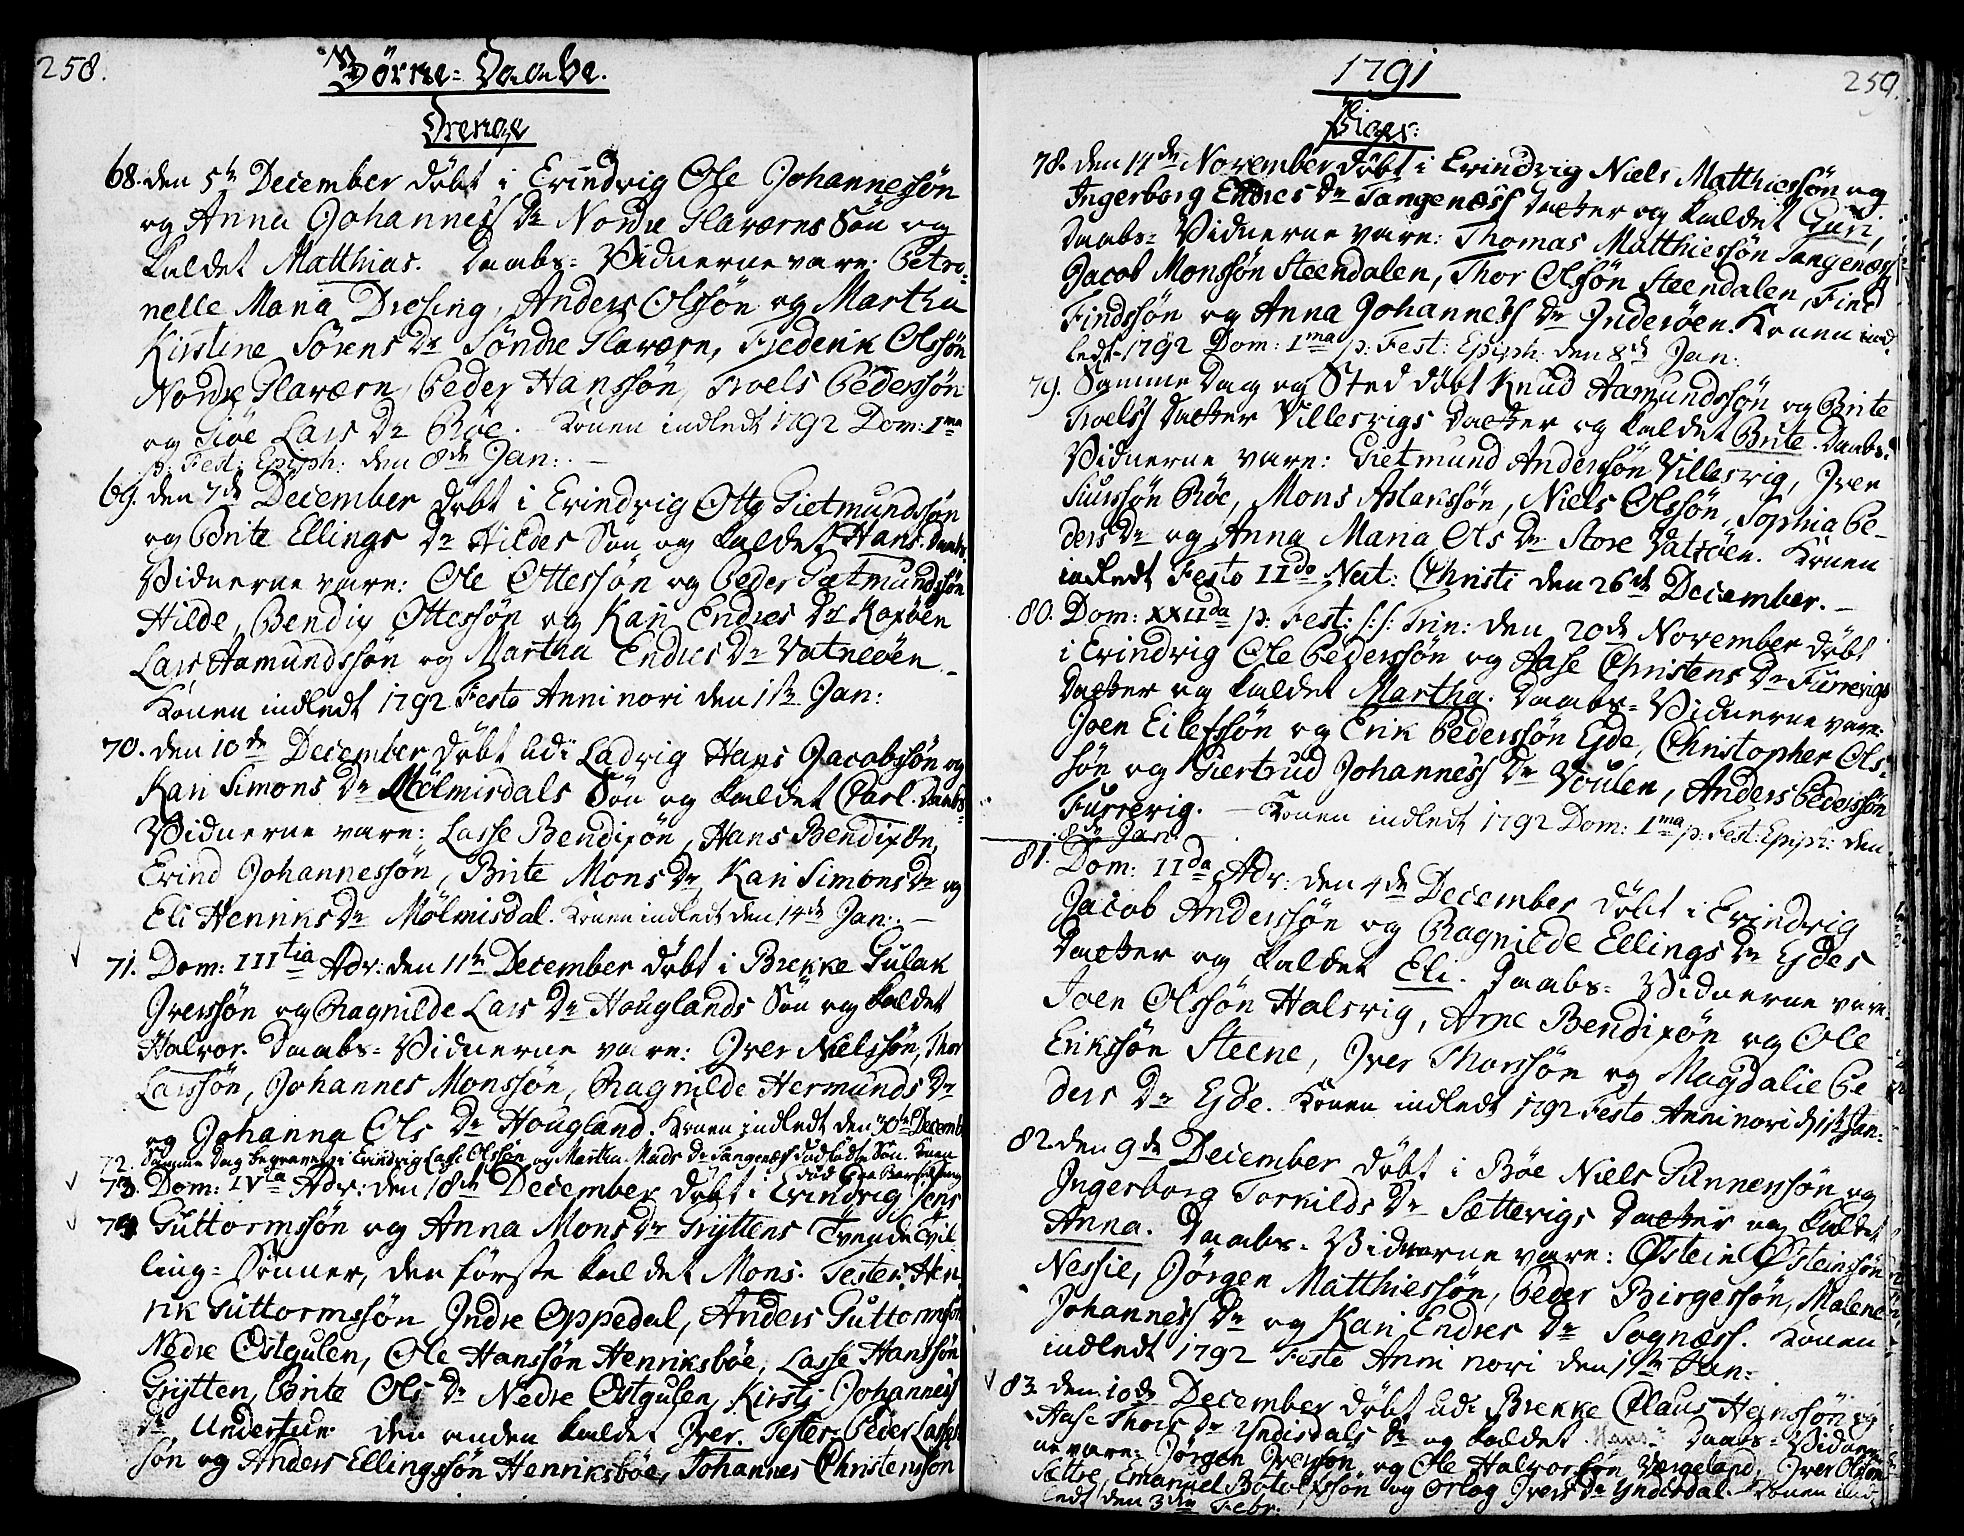 258.
Börne-Daabe.
Drenge
68. den 5te December döbt i Evindvig Ole Johannessön
og Anna Johanness Dr Nordre Glaværns Sön og
kaldet Matthias. Daabs-Vidnerne vare: Petro-
nelle Maria Dresing, Anders Olssön og Martha
Kirstine Sörens Dr Söndre Glaværn, Frederik Olssön
Nordre Glaværn, Peder Hanssön, Troels Pederssön
og Giöe Lars Dr Böe. Konen indledt 1792 Dom: Ima
p: Fest: Epiph: den 8de Jan:
69. den 7de December döbt i Evindvig Otte Gietmundssön
og Brite Ellings Dr Hildes Sön og kaldet Hans. Daabs-
Vidnerne vare: Ole Ottessön og Peder Gietmundssön
Hilde, Bendix Ottessön og Kari Endres Dr
Lars Aamundssön og Martha Endres Dr Vatneöen.
Konen indledt 1792 Festo Anni novi den 1ste Jan:
70. den 10de December döbt udi Ladvig Hans Jacobssön og
Kari Simons Dr Mölmisdals Sön og kaldet Carl. Daabs-
Vidnerne vare: Lasse Bendixön, Hans Bendixön,
Evind Johannessön, Brite Mons Dr, Kari Simons Dr og
Eli Henriks Dr Mölmisdal. Konen indledt den 14de Jan:
71. Dom: IIItia Adv: den 11te December döbt i Brekke Gulak
Iverssön og Ragnilde Lars Dr Houglands Sön og kaldet
Halvor. Daabs-Vidnerne vare: Iver Nielssön, Thor
Larssön, Johannes Monssön, Ragnilde Hermunds Dr
og Johanna Ols Dr Hougland. Konen indledt den 30te Decemb
72. Samme Dag begravet i Evindvig Lasse Olssön og Martha Mads Dr Tangenæss dödfödte Sön. Konen
73. Dom: IVta Adv: den 18de December döbt i Evindvig Jens
74. Guttormssön og Anna Mons Dr Gryttens Tvende Tvil
ling-Sönner, den förste kaldet Mons. Testes: Hen
rik Guttormssön Indre Oppedal, Anders Guttormssön
Nedre Östgulen, Ole Hanssön Henriksböe, Lasse Hanssön
Grytten, Brite Ols Dr Nedre Östgulen, Kirstj Johanness
Dr Undertun den anden kaldet Iver. Testes: Peder Lasse
sön og Anders Ellingssön Henriksböe, Johannes Christenssön
1791
259.
Piger:
78. den 14de November döbt i Evindvig Niels Matthiessön og
Ingerborg Endres Dr Tangenæss Datter og kaldet Guri,
Daabs-Vidnerne vare: Thomas Matthiessön Tangenæss
Jacob Monssön Steendalen, Thor Olssön Steendalen, Find
Findssön og Anna Johanness Dr Inderöen. Konen ind-
ledt 1792 Dom: Ima p: Fest: Epiph: den 8de Jan:
79. Samme Dag og Sted döbt Knud Aamundssön og Brite
Troelss Datter Villesvigs Datter og kaldet Brite. Daabs-
Vidnerne vare: Gietmund Anderssön Villesvig, Iver
Siurssön Böe, Mons Aslakssön, Niels Olssön, Sophia Pe-
ders Dr og Anna Maria Ols Dr Store Vatsöen. Konen
indledt Festo IIdo Nat: Christi den 26de December.
80. Dom: XXIIda p: Fest: S:S: Trin: den 20de November döbt
i Evindvig Ole Pederssön og Aase Christens Dr Furrevigs
Datter og kaldet Martha. Daabs-Vidnerne vare:
Joen Eilefssön og Erik Pederssön Eide, Christopher Ols-
sön og Giertrud Johanness Dr Voulen, Anders Pederssön
Furrevig. Konen indledt 1792 Dom: Ima p: Fest: Epiph: den
8de Jan:
81. Dom: IIda Adv: den 4de December döbt i Evindvig
Jacob Anderssön og Ragnilde Ellings Dr Eides
Datter og kaldet Eli. Daabs-Vidnerne vare:
Joen Olssön Halsvig, Arne Bendixön og Ole
Erikssön Steene, Iver Thorssön og Magdalie Pe
ders Dr Eide. Konen indledt 1792 Festo Anni novi d: 1ste Jan:
82. den 9de December döbt i Böe Niels Gunnerssön og
Ingerborg Torkilds Dr Sættevigs Datter og kaldet
Anna. Daabs-Vidnerne vare: Östein Östeinssön
Nessie, Jörgen Matthiessön, Peder Birgessön, Malene
Johanness Dr og Kari Endres Dr Sognæss. Konen
indledt 1792 Festo Anni novi den 1ste Jan:
83. den 10de December döbt udi Brekke Claus Heinssön og
Aase Thors Dr Yndisdals Dr og kaldet Daabs-Vidner
ne vare: Jörgen Iverssön og Ole Halvorssön Værgeland, Iver Olssön
Sættre, Emanuel Botolfssön og Orlog Ivers Dr Yndisdal. Konen ind
ledt den 3die Febr: